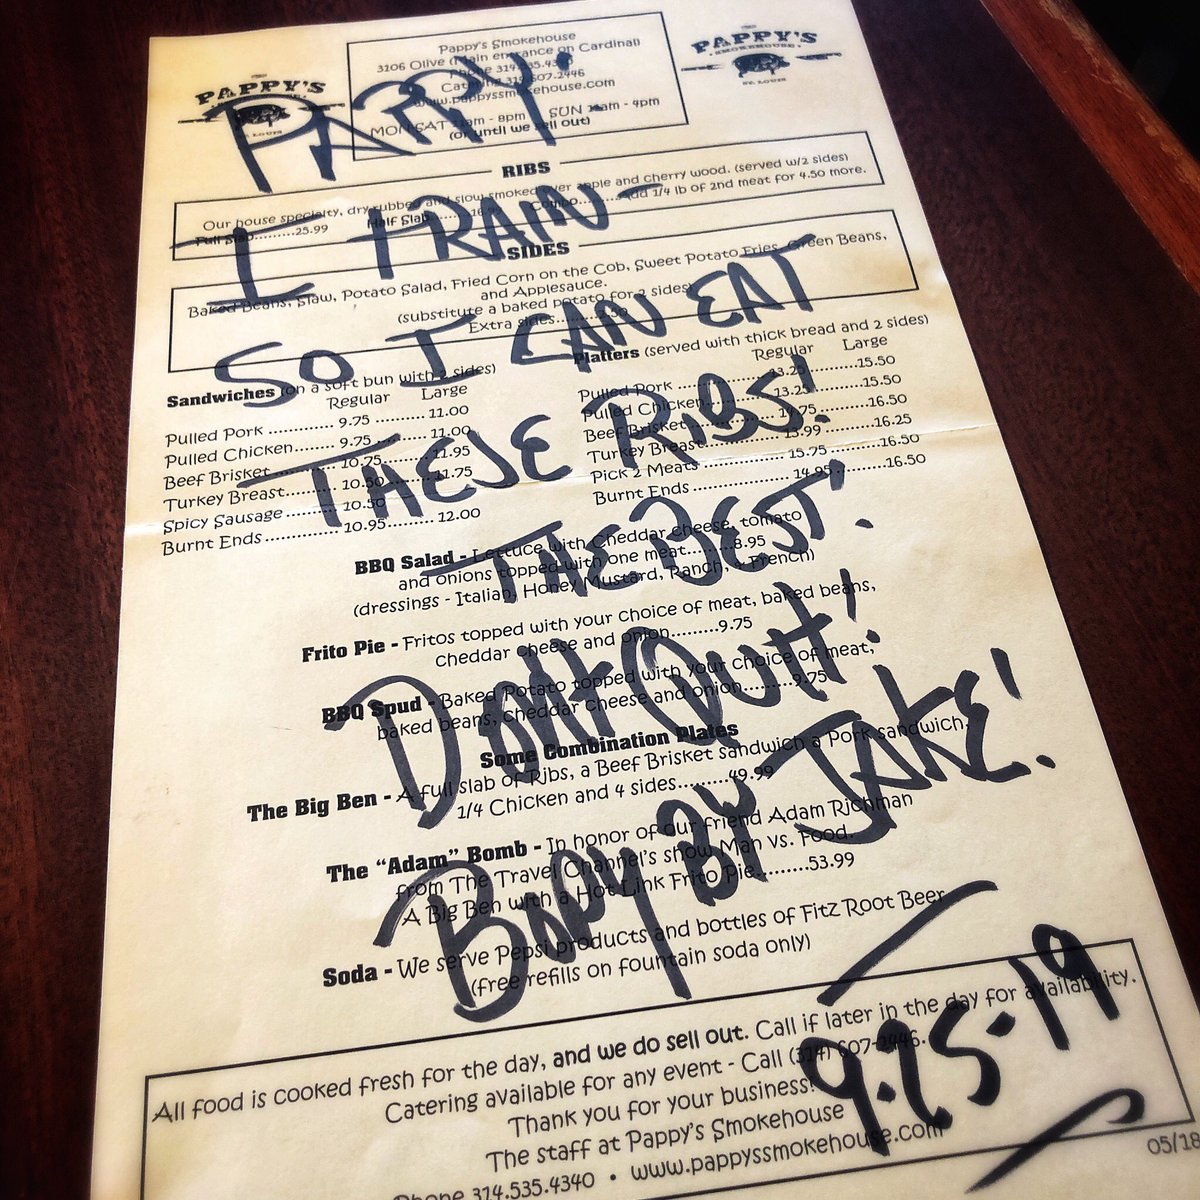 PAPPY'S
SMOKEHOUSE
ST. LOUIS
Pappy's Smokehouse
3106 Olive (Main entrance on Cardinal)
Phone 314.535.4340
Catering 314.607.2446
www.pappyssmokehouse.com
MON-SAT 11am - 8pm SUN 11am - 4pm
(or until we sell out)
PAPPY'S
SMOKEHOUSE
ST. LOUIS
PAPPY:
RIBS
Our house specialty, dry rubbed and slow smoked over apple and cherry wood. (served w/2 sides)
Full Slab..........25.99 Half Slab Combo..........Add 1/4 lb of 2nd meat for 4.50 more.
I TRAIN-
SIDES
Baked Beans, Slaw, Potato Salad, Fried Corn on the Cob, Sweet Potato Fries, Green Beans,
and Applesauce.
(substitute a baked potato for 2 sides)
Extra sides
SO I CAN EAT
Sandwiches (on a soft bun with 2 sides)
Regular Large
Pulled Pork ............. 9.75 ........ 11.00
Pulled Chicken ........ 9.75 ........ 11.00
Beef Brisket 10.75 11.95
Turkey Breast 10.50 11.75
Spicy Sausage ........ 10.50
Burnt Ends ............... 10.95 ......... 12.00
Platters (served with thick bread and 2 sides)
Regular Large
Pulled Pork 13.25 15.50
Pulled Chicken 13.25 15.50
Beef Brisket 14.75 16.50
Turkey Breast 13.99 16.25
Pick 2 Meats 15.75 16.50
Burnt Ends 14.95 16.50
THESE RIBS!
THE BEST!
BBQ Salad - Lettuce with Cheddar cheese, tomato
and onions topped with one meat.........8.95
(dressings - Italian, Honey Mustard, Ranch, French)
Frito Pie - Fritos topped with your choice of meat, baked beans,
cheddar cheese and onion..........9.75
DON'T QUIT!
BBQ Spud - Baked Potato topped with your choice of meat,
baked beans, cheddar cheese and onion..........9.75
Some Combination Plates
The Big Ben - A full slab of Ribs, a Beef Brisket sandwich a Pork sandwich,
1/4 Chicken and 4 sides..........49.99
BODY BY JAKE!
The "Adam" Bomb - In honor of our friend Adam Richman
from The Travel Channel's show Man vs. Food.
A Big Ben with a Hot Link Frito Pie..........53.99
Soda - We serve Pepsi products and bottles of Fitz Root Beer
(free refills on fountain soda only)
9.25.19
All food is cooked fresh for the day, and we do sell out. Call if later in the day for availability.
Catering available for any event - Call (314) 607-2446.
Thank you for your business!
The staff at Pappy's Smokehouse
Phone 314.535.4340 • www.pappyssmokehouse.com
05/18